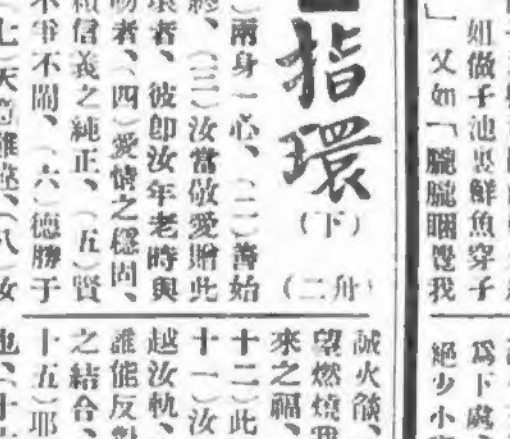 姐做子池裏鮮魚穿子
」又如「朧朧睏覺我
爲下處
絕少小
指環
(下)
(二舟)
)兩身一心、(二)善始
終、(三)汝當敬愛贈此
環者、彼卽汝年老時與
者、(四)愛情之穩固、
信義之純正、(五)賢
不鬧、(六)德勝于
(七)天
(八)汝
誠火燄、
望燃燒
來之福、
十二)此
十一)汝
越汝軌、
誰能反對
之結合、
十五)耶
也、